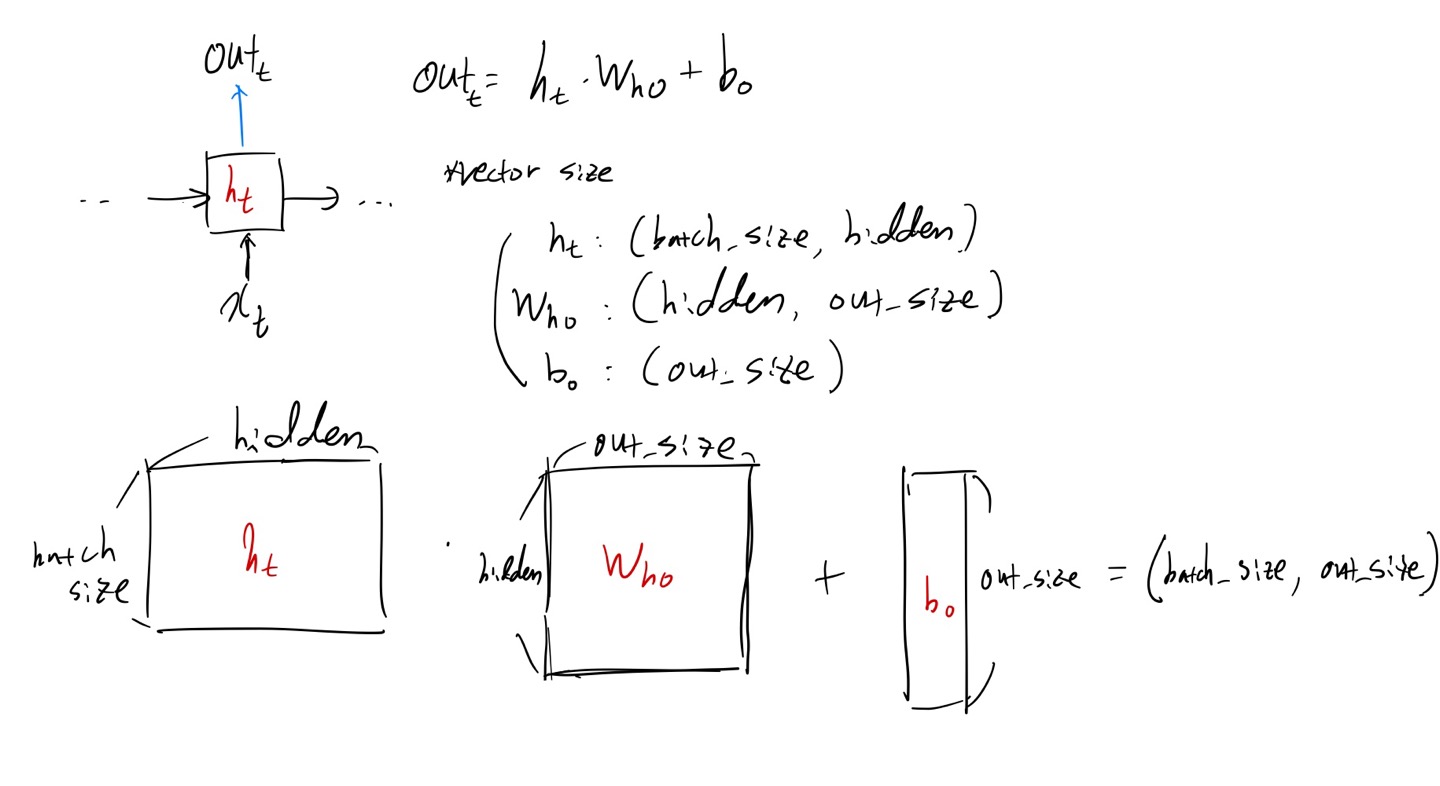 out_t
out_t = h_t · W_ho + b_o
vector size
-- h_t ...
h_t : (batch_size, hidden)
x_t
W_ho : (hidden, out_size)
b_o : (out_size)
hidden
out_size
batch
size
h_t
·
hidden
W_ho
+
b_o
out_size = (batch_size, out_size)